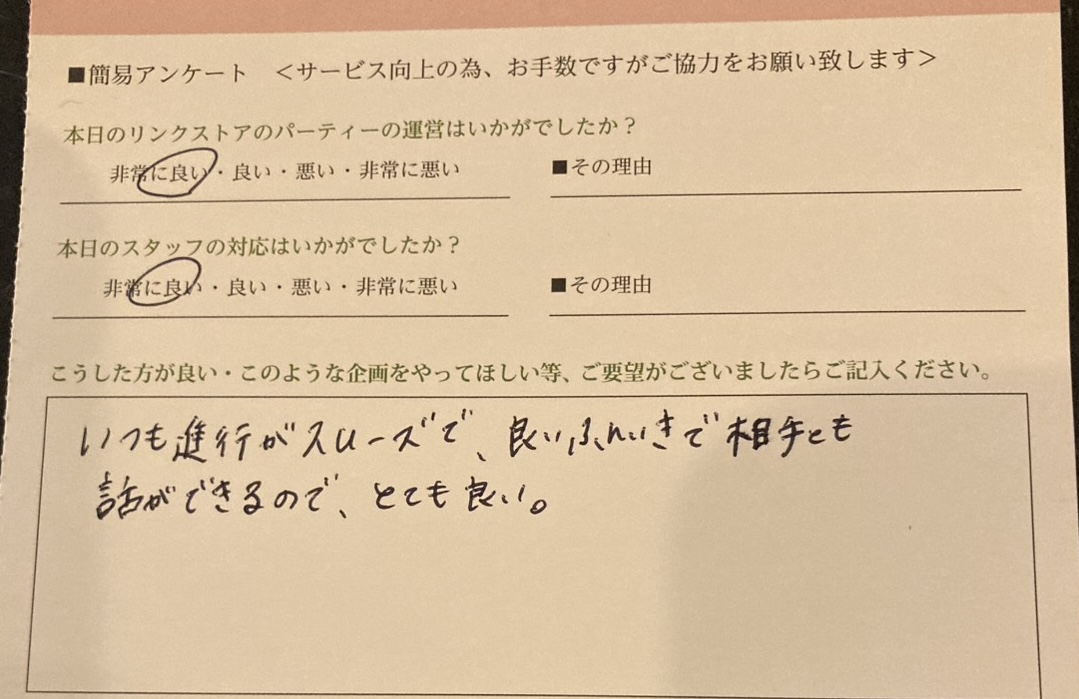 ■簡易アンケート ＜サービス向上の為、お手数ですがご協力をお願い致します＞
本日のリンクストアのパーティーの運営はいかがでしたか？
非常に良い・良い・悪い・非常に悪い ■その理由
本日のスタッフの対応はいかがでしたか？
非常に良い・良い・悪い・非常に悪い ■その理由
こうした方が良い・このような企画をやってほしい等、ご要望がございましたらご記入ください。
いつも進行がスムーズで、良いふんいきで相手とも
話ができるので、とても良い。